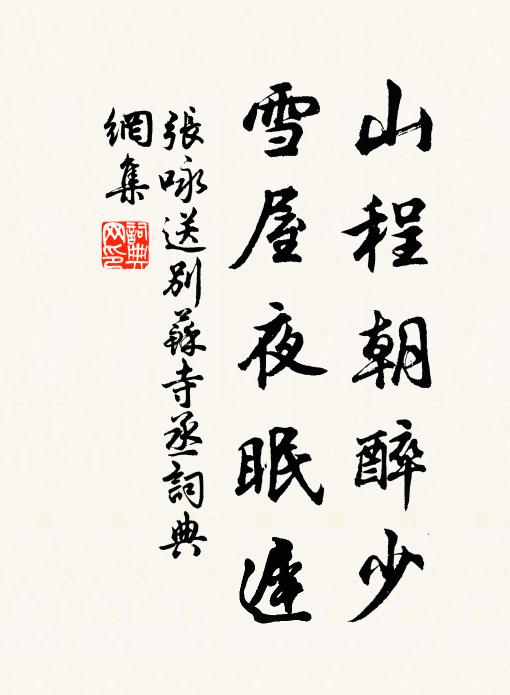 山程朝醉少
雪屋夜眠遲
張咏送别蘇寺丞詞典
網集
詞典网印